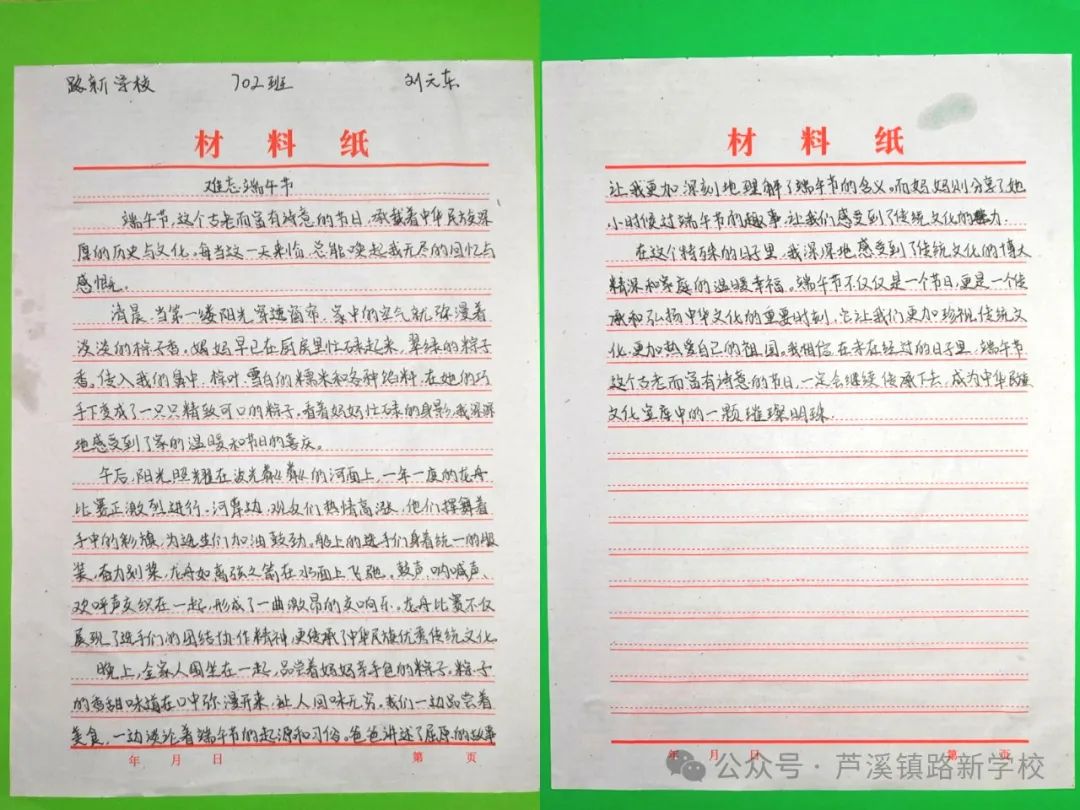 路新学校 702班 刘元东
材料纸
难忘端午节
端午节,这个古老而富有诗意的节日,承载着中华民族深
厚的历史与文化。每当这一天来临,总能唤起我无尽的回忆与
感慨。
清晨,当第一缕阳光穿透窗帘,家中的空气就弥漫着
淡淡的粽子香。妈妈早已在厨房里忙碌起来,翠绿的粽子
香。传入我们鼻中,粽叶、雪白的糯米和各种馅料,在她的巧
手下变成了一只只精致可口的粽子。看着妈妈忙碌的身影,我深深
地感受到了家的温暖和节日的喜庆。
午后,阳光照耀在波光粼粼的河面上,一年一度的龙舟
比赛正激烈进行。河岸边,观众们热情高涨,他们挥舞着
手中的彩旗,为选手们加油鼓劲。船上的选手们身着统一的服
装,奋力划桨,龙舟如离弦之箭在水面上飞驰。鼓声、呐喊声、
欢呼声交织在一起,形成了一曲激昂的交响乐。龙舟比赛不仅
展现了选手们的团结协作精神,更传承了中华民族优秀传统文化。
晚上,全家人围坐在一起,品尝着妈妈亲手包的粽子,粽子
的香甜味道在口中弥漫开来,让人回味无穷。我们一边品尝着
美食,一边谈论着端午节的起源和习俗。爸爸讲述了屈原的故事
年 月 日 第 页
材料纸
让我更加深刻地理解了端午节的含义。而妈妈则分享了她
小时候过端午节的趣事,让我们感受到了传统文化的魅力。
在这个特殊的日子里,我深深地感受到了传统文化的博大
精深和家庭的温暖幸福。端午节不仅仅是一个节日,更是一个传
承和弘扬中华文化的重要时刻,它让我们更加珍视传统文
化,更加热爱自己的祖国。我相信,在未来经过的日子里,端午节
这个古老而富有诗意的节日,一定会继续传承下去,成为中华民族
文化宝库中的一颗璀璨明珠.
年 月 日 第 页
公众号·芦溪镇路新学校